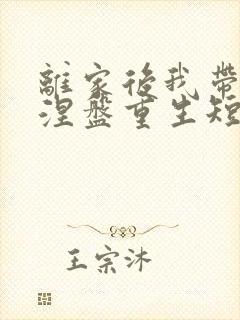 離家後我帶
涅盤重生短
王宗沐